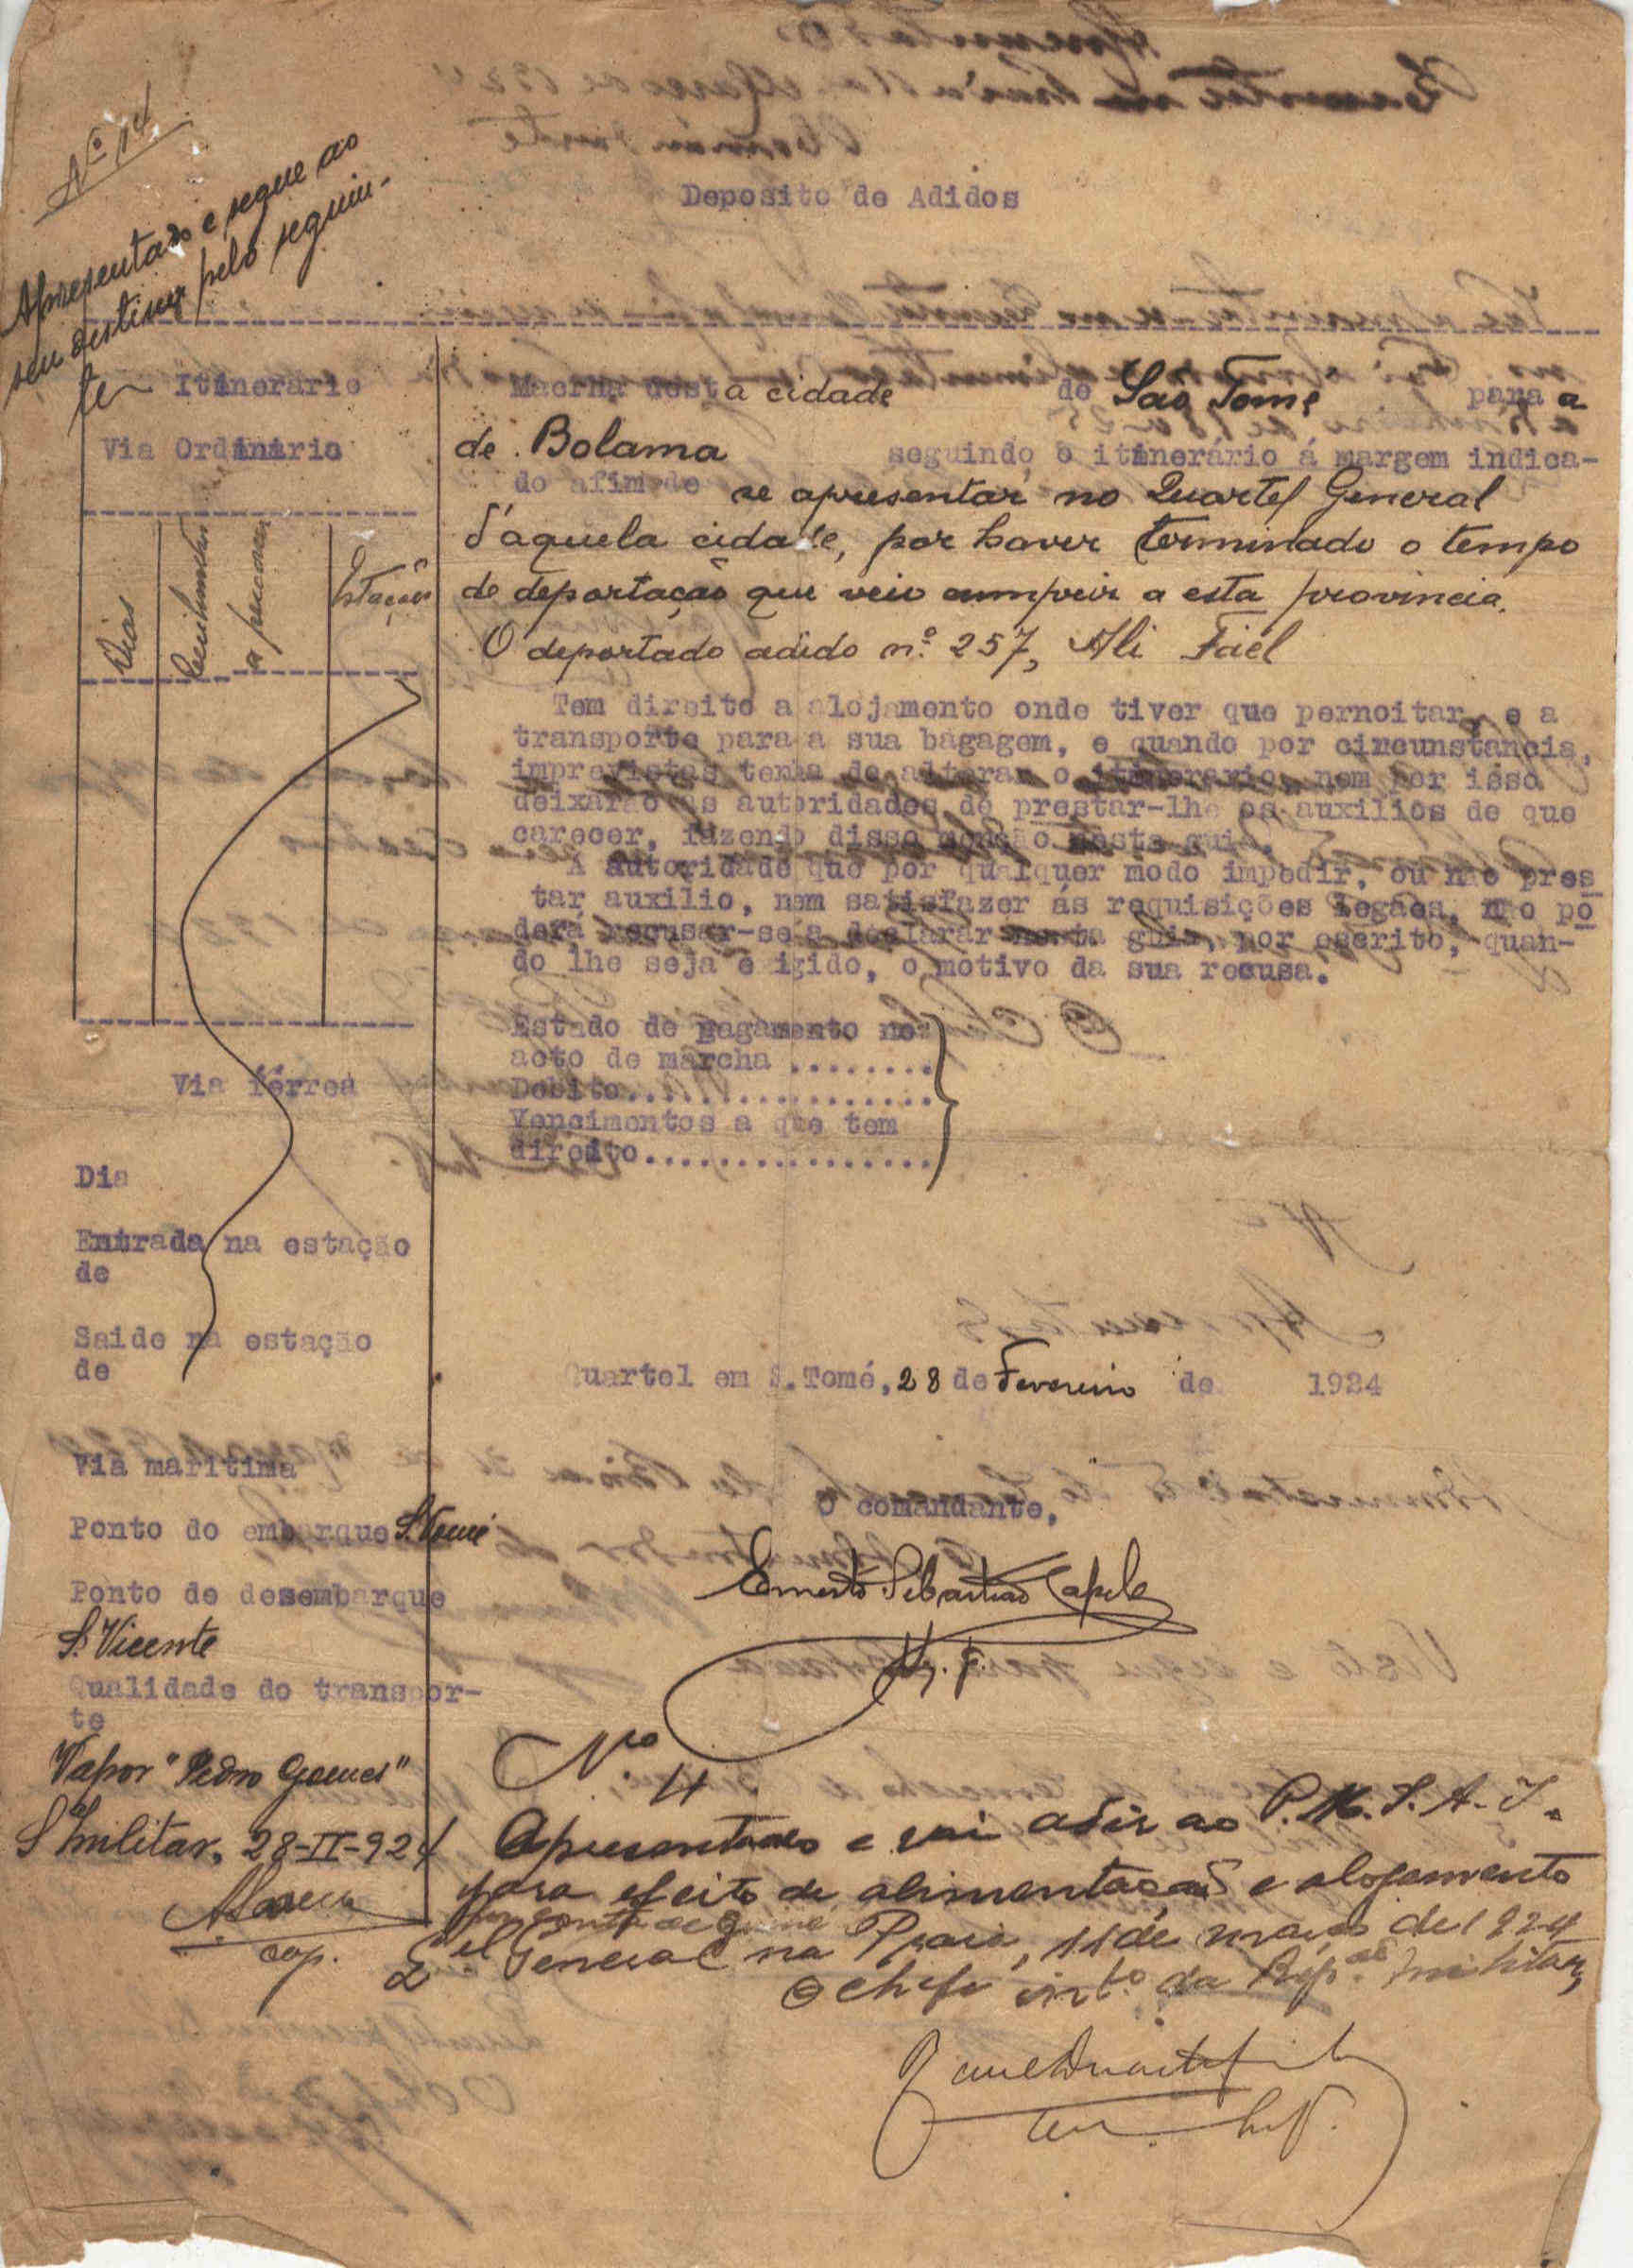 Nº 14
Apresentado e segue ao
seu destino pelo seguin-
te
Deposito de Adidos
Itinerário
Via Ordinário
Dias
a
Estações
Marcha desta cidade de São Tomé para a
de Bolama seguindo o itinerário á margem indica-
do afim de se apresentar no Quartel General
d'aquela cidade, por haver terminado o tempo
de deportação que veio cumprir a esta provincia.
O deportado adido n.º 257, Ali Faiel
Tem direito a alojamento onde tiver que pernoitar, e a
transporte para a sua bagagem, e quando por circunstancia,
imprevistas tenha de alterar o itinerario, nem por isso
deixarão as autoridades de prestar-lhe os auxilios de que
carecer, fazendo disso menção nesta guia.
A autoridade que por qualquer modo impedir, ou não pres
tar auxilio, nem satisfazer ás requisições legaes, não po
derá recusar-se a declarar nesta guia, por escrito, quan-
do lhe seja exigido, o motivo da sua recusa.
Estado de pagamento no
acto de marcha ........
Debito.................
Vencimentos a que tem
direito................
Via férrea
Dia
Entrada na estação
de
Saide na estação
de
Quartel em S.Tomé, 28 de Fevereiro de 1924
Via maritima
Ponto do embarque S. Tomé
Ponto de desembarque
S. Vicente
Qualidade do transpor-
te
Vapor "Pedro Gomes"
S. Militar, 28-II-924
cap.
O comandante,
Ernesto Sebastião Capela
Nº 4
Apresentado e vai adir ao P.M.S.A.T.
para efeito de alimentação e alojamento
por conta de Guiné
Qel General na Praia, 11 de março de 1924
O chefe intº da Repão Militar,